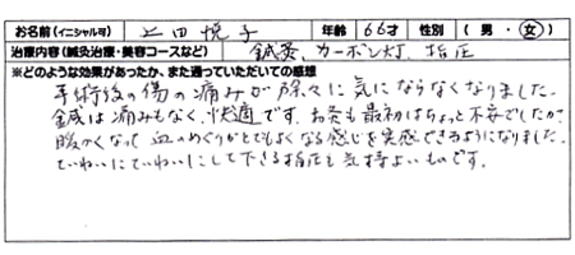 お名前(イニシャル可) 上田悦子 年齢 66才 性別 ( 男 ・ 女 )
治療内容(鍼灸治療・美容コースなど) 鍼灸、カーボン灯、指圧
※どのような効果があったか、また通っていただいての感想
手術後の傷の痛みが除々に気にならなくなりました。
鍼は痛みもなく、快適です。お灸も最初はちょっと不安でしたが、
暖かくなって血のめぐりがとてもよくなる感じを実感できるようになりました。
ていねいにていねいにして下さる指圧も気持よいものです。